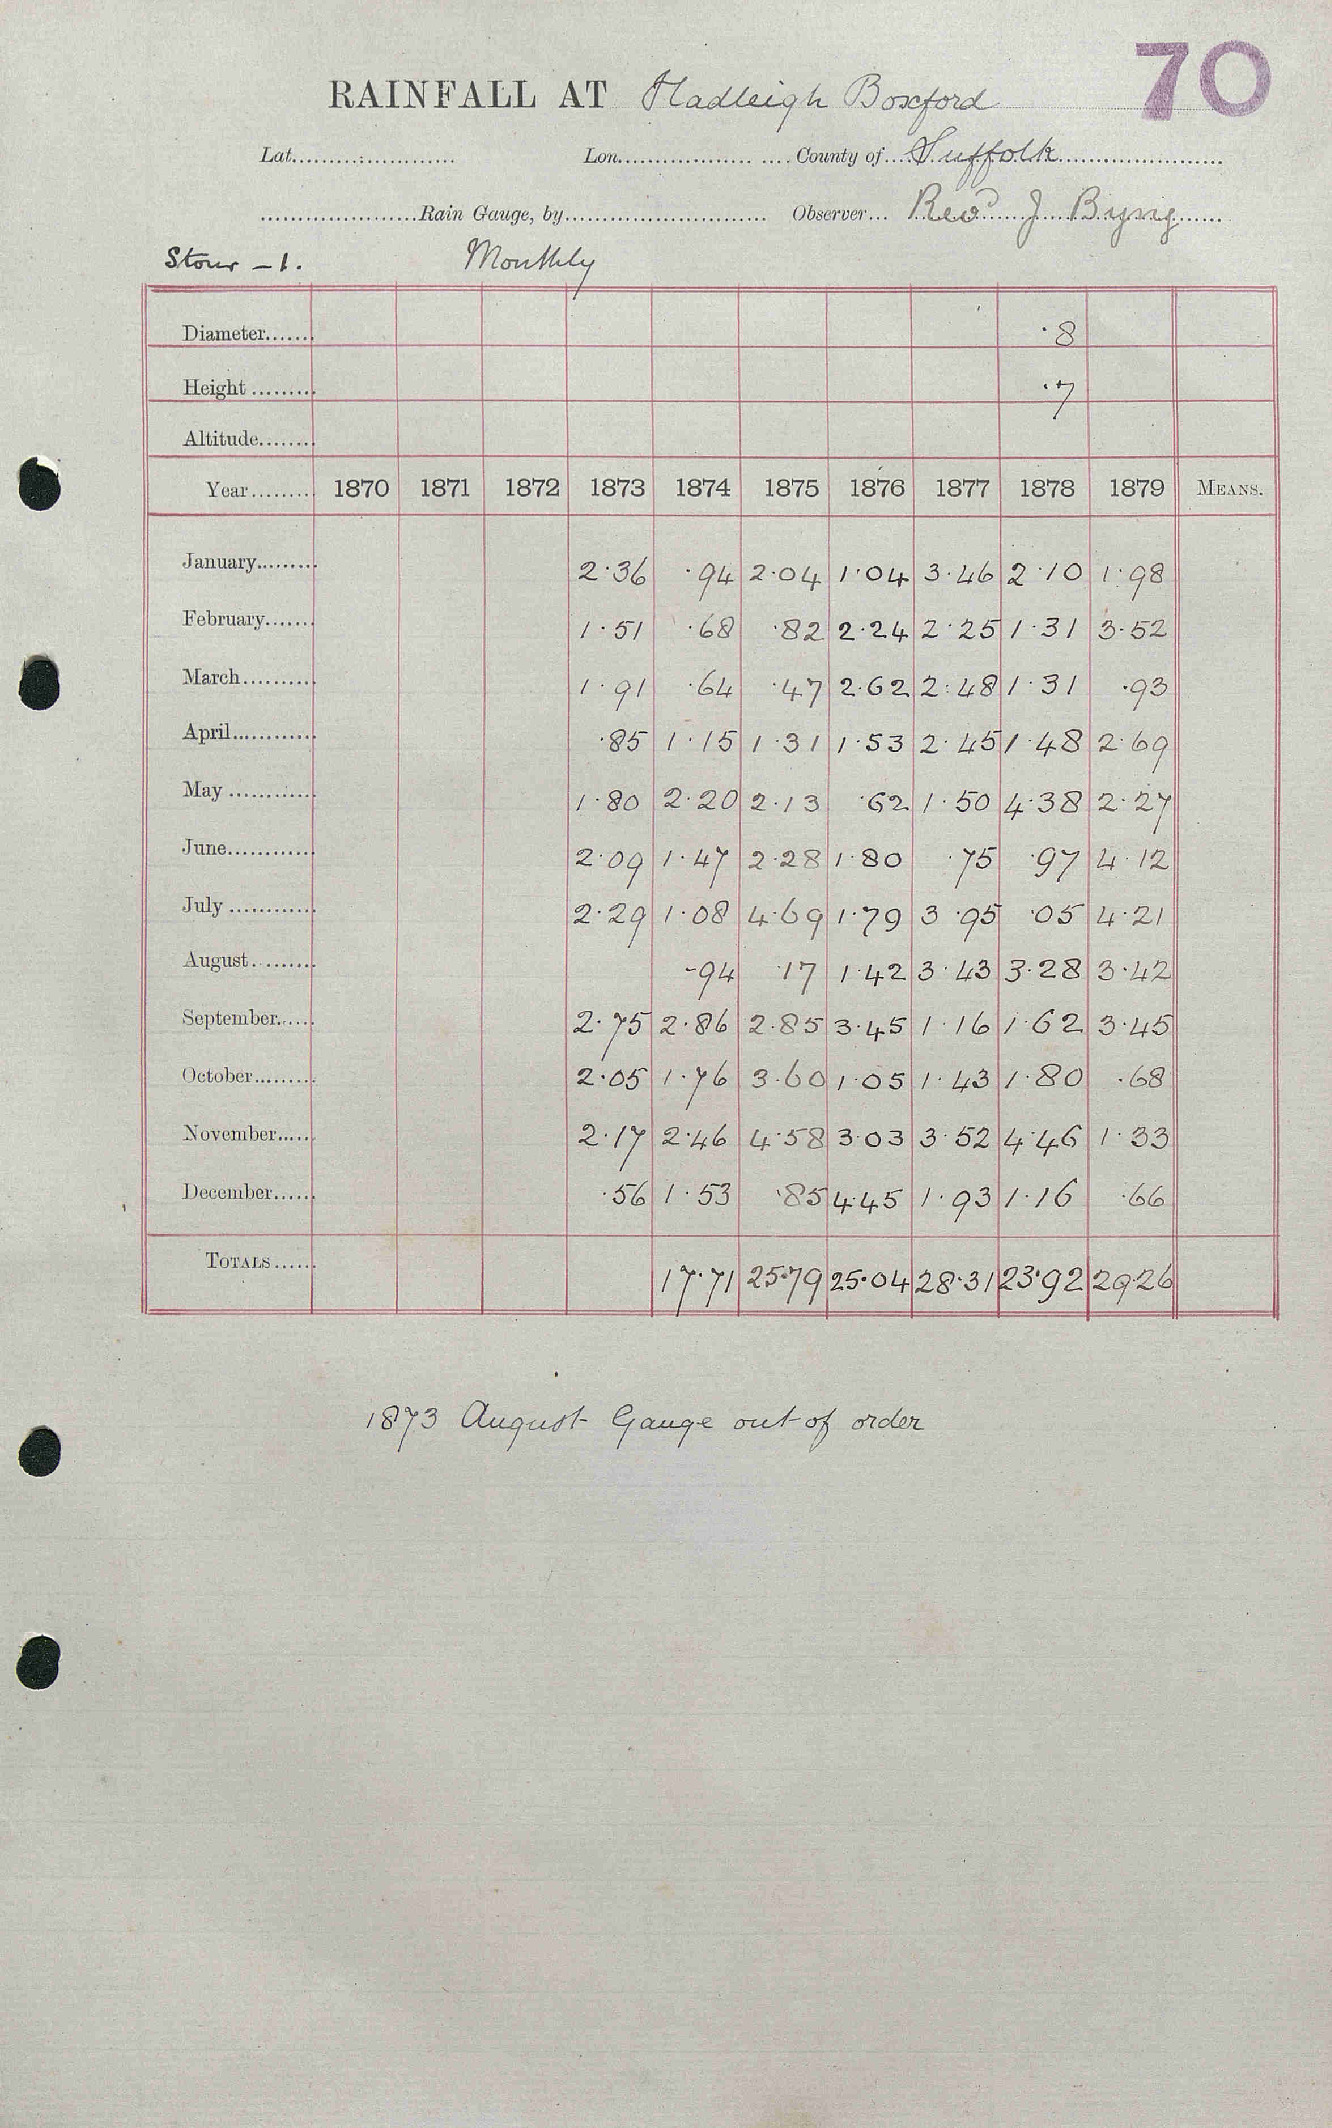 70
RAINFALL AT Hadleigh Boxford
Lat. Lon. County of Suffolk
Rain Gauge, by Observer Revd J Byng
Stour – 1. Monthly
Diameter ·8
Height ·7
Altitude
Year 1870 1871 1872 1873 1874 1875 1876 1877 1878 1879 MEANS.
January 2·36 ·94 2·04 1·04 3·46 2·10 1·98
February 1·51 ·68 ·82 2·24 2·25 1·31 3·52
March 1·91 ·64 ·47 2·62 2·48 1·31 ·93
April ·85 1·15 1·31 1·53 2·45 1·48 2·69
May 1·80 2·20 2·13 ·62 1·50 4·38 2·27
June 2·09 1·47 2·28 1·80 ·75 ·97 4·12
July 2·29 1·08 4·69 1·79 3·95 ·05 4·21
August ·94 ·17 1·42 3·43 3·28 3·42
September 2·75 2·86 2·85 3·45 1·16 1·62 3·45
October 2·05 1·76 3·60 1·05 1·43 1·80 ·68
November 2·17 2·46 4·58 3·03 3·52 4·46 1·33
December ·56 1·53 ·85 4·45 1·93 1·16 ·66
TOTALS 17·71 25·79 25·04 28·31 23·92 29·26
1873 August Gauge out of order